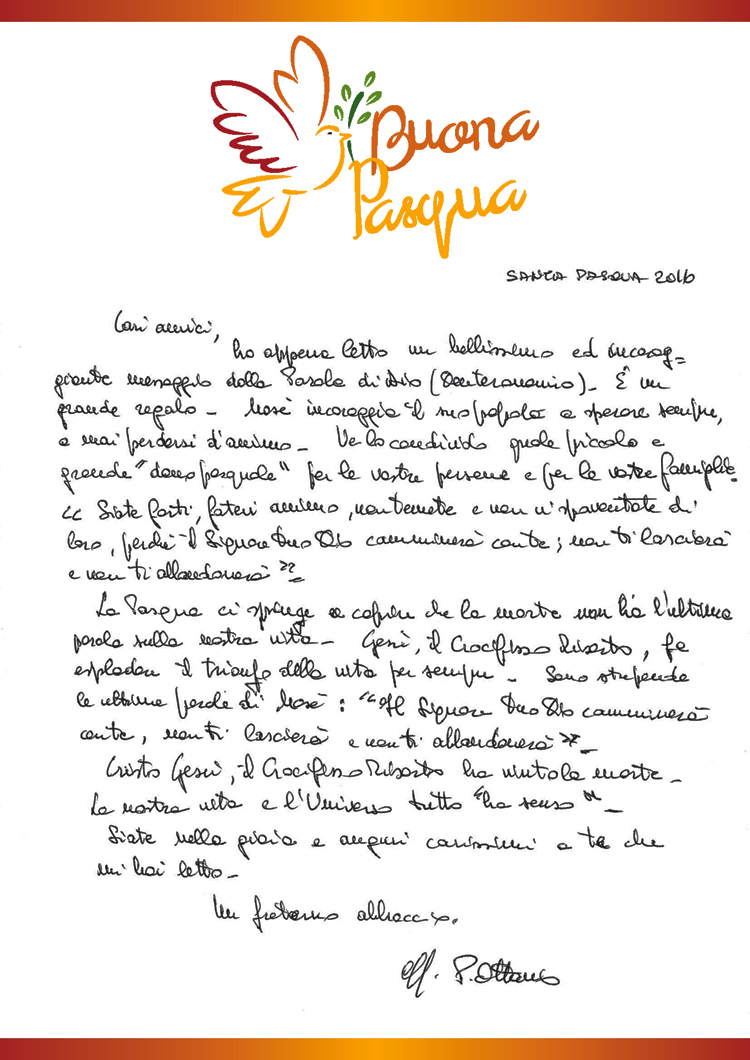 Buona
Pasqua
SANTA PASQUA 2016
Cari amici,
ho appena letto un bellissimo ed incorag=
giante messaggio della Parola di Dio (Deuteronomio)_ È un
grande regalo _ Mosè incoraggia il suo popolo a sperare sempre,
a mai perdersi d'animo _ Ve lo condivido quale piccolo e
grande "dono pasquale" per le vostre persone e per le vostre famiglie.
<< Siate forti, fatevi animo, non temete e non vi spaventate di
loro, perché il Signore tuo Dio camminerà con te; non ti lascierà
e non ti abbandonerà >>_
La Pasqua ci spinge a capire che la morte non ha l'ultima
parola sulla nostra vita _ Gesù, il Crocifisso Risorto, fa
esplodere il trionfo della vita per sempre _ Sono stupende
le ultime parole di Mosè : "Il Signore tuo Dio camminerà
con te, non ti lascierà e non ti abbandonerà >>_
Cristo Gesù, il Crocifisso Risorto ha vinto la morte _
La nostra vita e l'Universo tutto "ha senso" _
Siate nella gioia e auguri carissimi a te che
mi hai letto _
Un fraterno abbraccio.
aff. P. Ottavio